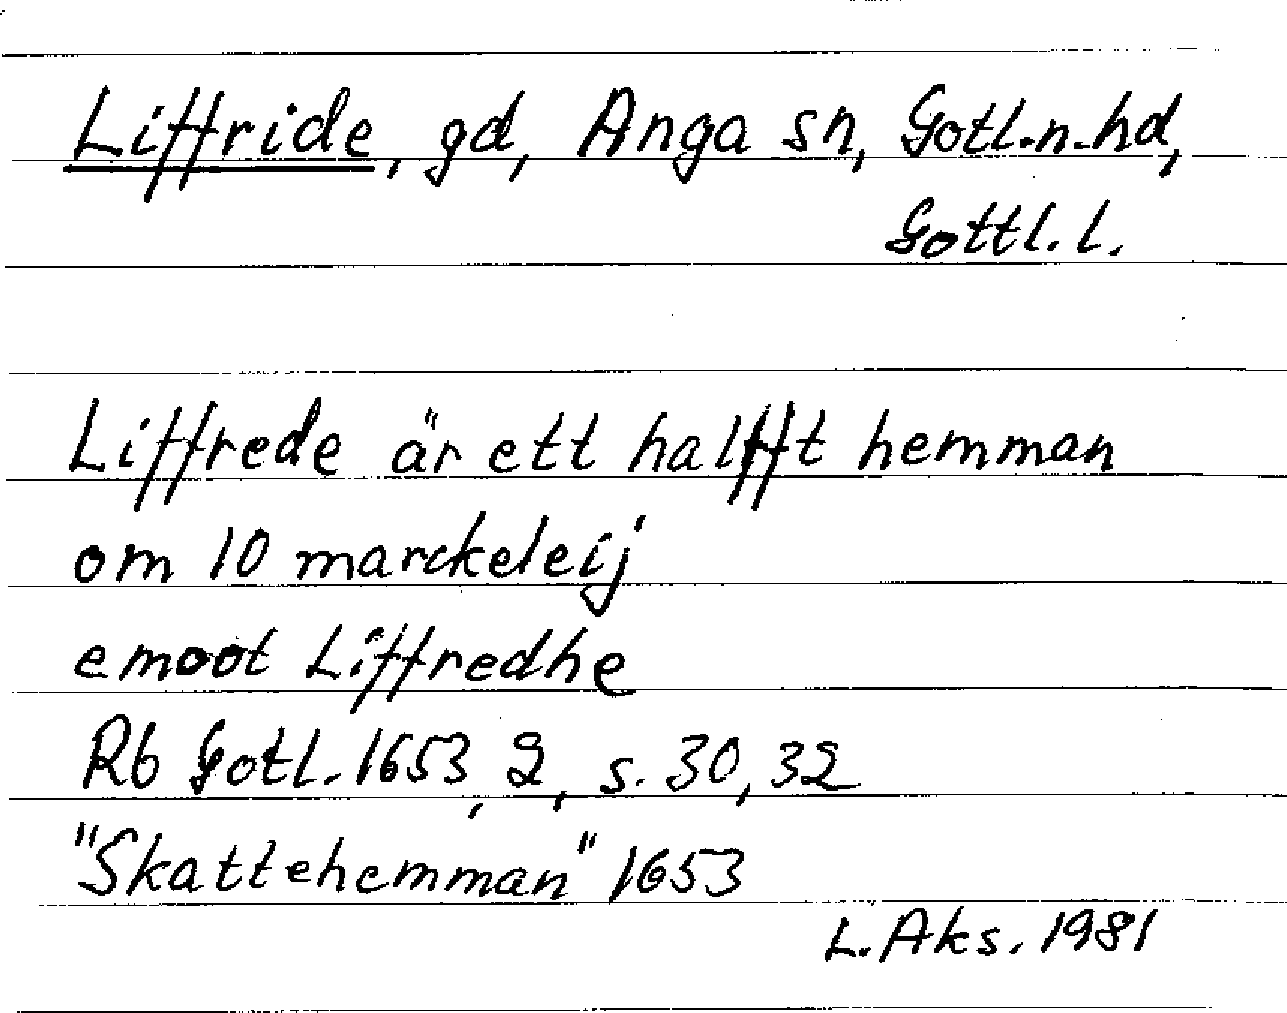 Liffride, gd, Anga sn, Gotl.n.hd,
Gottl. l.
Liffrede är ett halfft hemman
om 10 marckeleij
emoot Liffredhe
Rb Gotl. 1653, 2, s. 30, 32
"Skattehemman" 1653
L. Aks. 1981